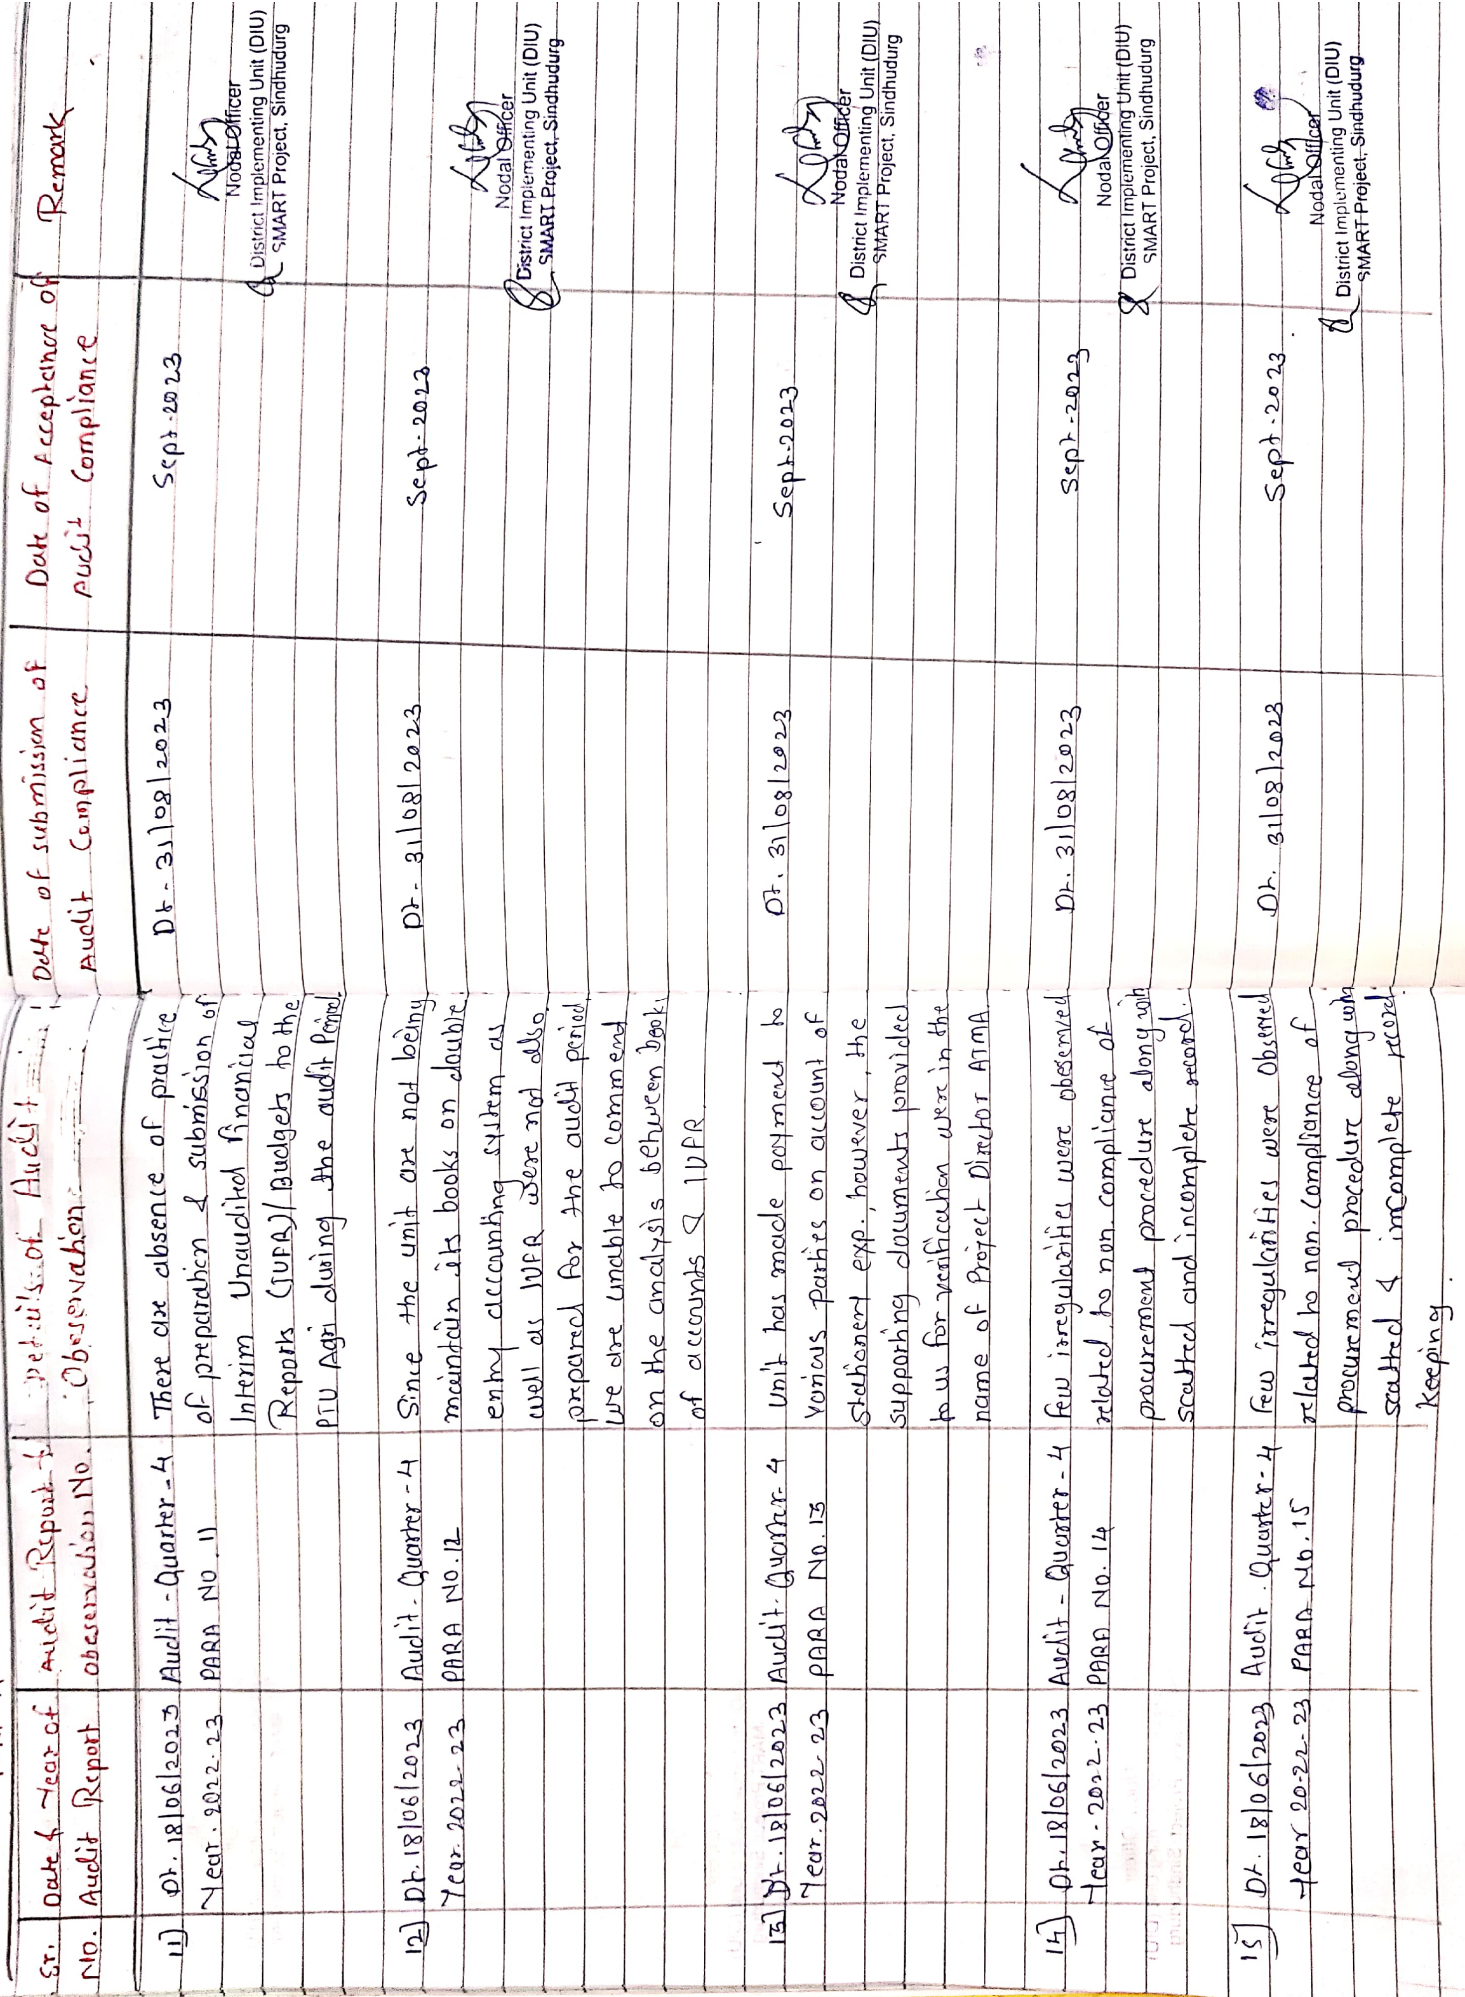 Sr. No.
Date & Year of Audit Report
Audit Report & obeservation No.
Details of Audit Observation
Date of submission of Audit Compliance
Date of Acceptance of Audit Compliance
Remark
11]
Dt. 18/06/2023
Year. 2022-23
Audit - Quarter - 4
PARA NO. 11
There are absence of practice
of preparation & submission of
Interim Unaudited Financial
Reports (IUFR)/Budgets to the
PIU Agri during the audit Period.
Dt - 31/08/2023
Sept-2023
Nodal Officer
District Implementing Unit (DIU)
SMART Project, Sindhudurg
12]
Dt. 18/06/2023
Year. 2022-23
Audit - Quarter - 4
PARA NO. 12
Since the unit are not being
maintain its books on double
entry accounting system as
well as IUFR were not also
prepared for the audit period
we are unable to commend
on the analysis between books
of accounts & IUFR.
Dt - 31/08/2023
Sept-2023
Nodal Officer
District Implementing Unit (DIU)
SMART Project, Sindhudurg
13]
Dt. 18/06/2023
Year. 2022-23
Audit - Quarter - 4
PARA NO. 13
Unit has made payment to
various parties on account of
stationery exp., however, the
supporting documents provided
to us for verification were in the
name of Project Director ATMA.
Dt. 31/08/2023
Sept-2023
Nodal Officer
District Implementing Unit (DIU)
SMART Project, Sindhudurg
14]
Dt. 18/06/2023
Year - 2022-23
Audit - Quarter - 4
PARA NO. 14
Few irregularities were obeserved
related to non compliance of
procurement procedure along with
scatted and incomplete record.
Dt. 31/08/2023
Sept-2023
Nodal Officer
District Implementing Unit (DIU)
SMART Project, Sindhudurg
15]
Dt. 18/06/2023
Year 20-22-23
Audit - Quarter - 4
PARA No. 15
Few irregularities were Observed
related to non. Compliance of
procurement procedure along with
scatted & incomplete record
keeping.
Dt. 31/08/2023
Sept-2023
Nodal Officer
District Implementing Unit (DIU)
SMART Project, Sindhudurg